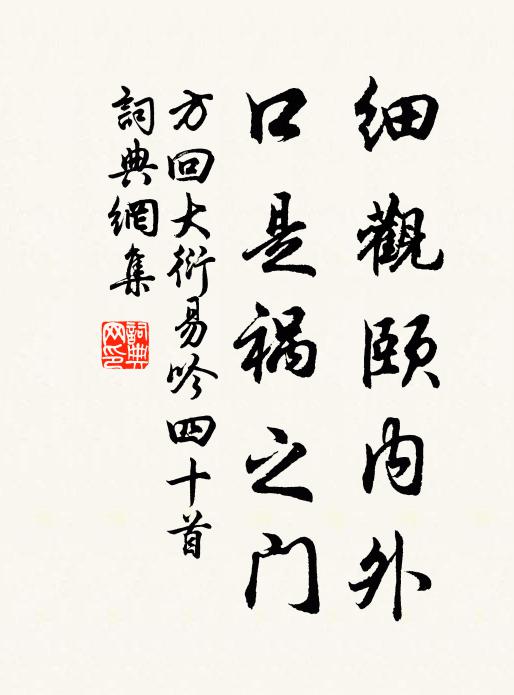 細觀頤内外
口是禍之门
方回大衍易吟四十首
詞典網集
詞典网印